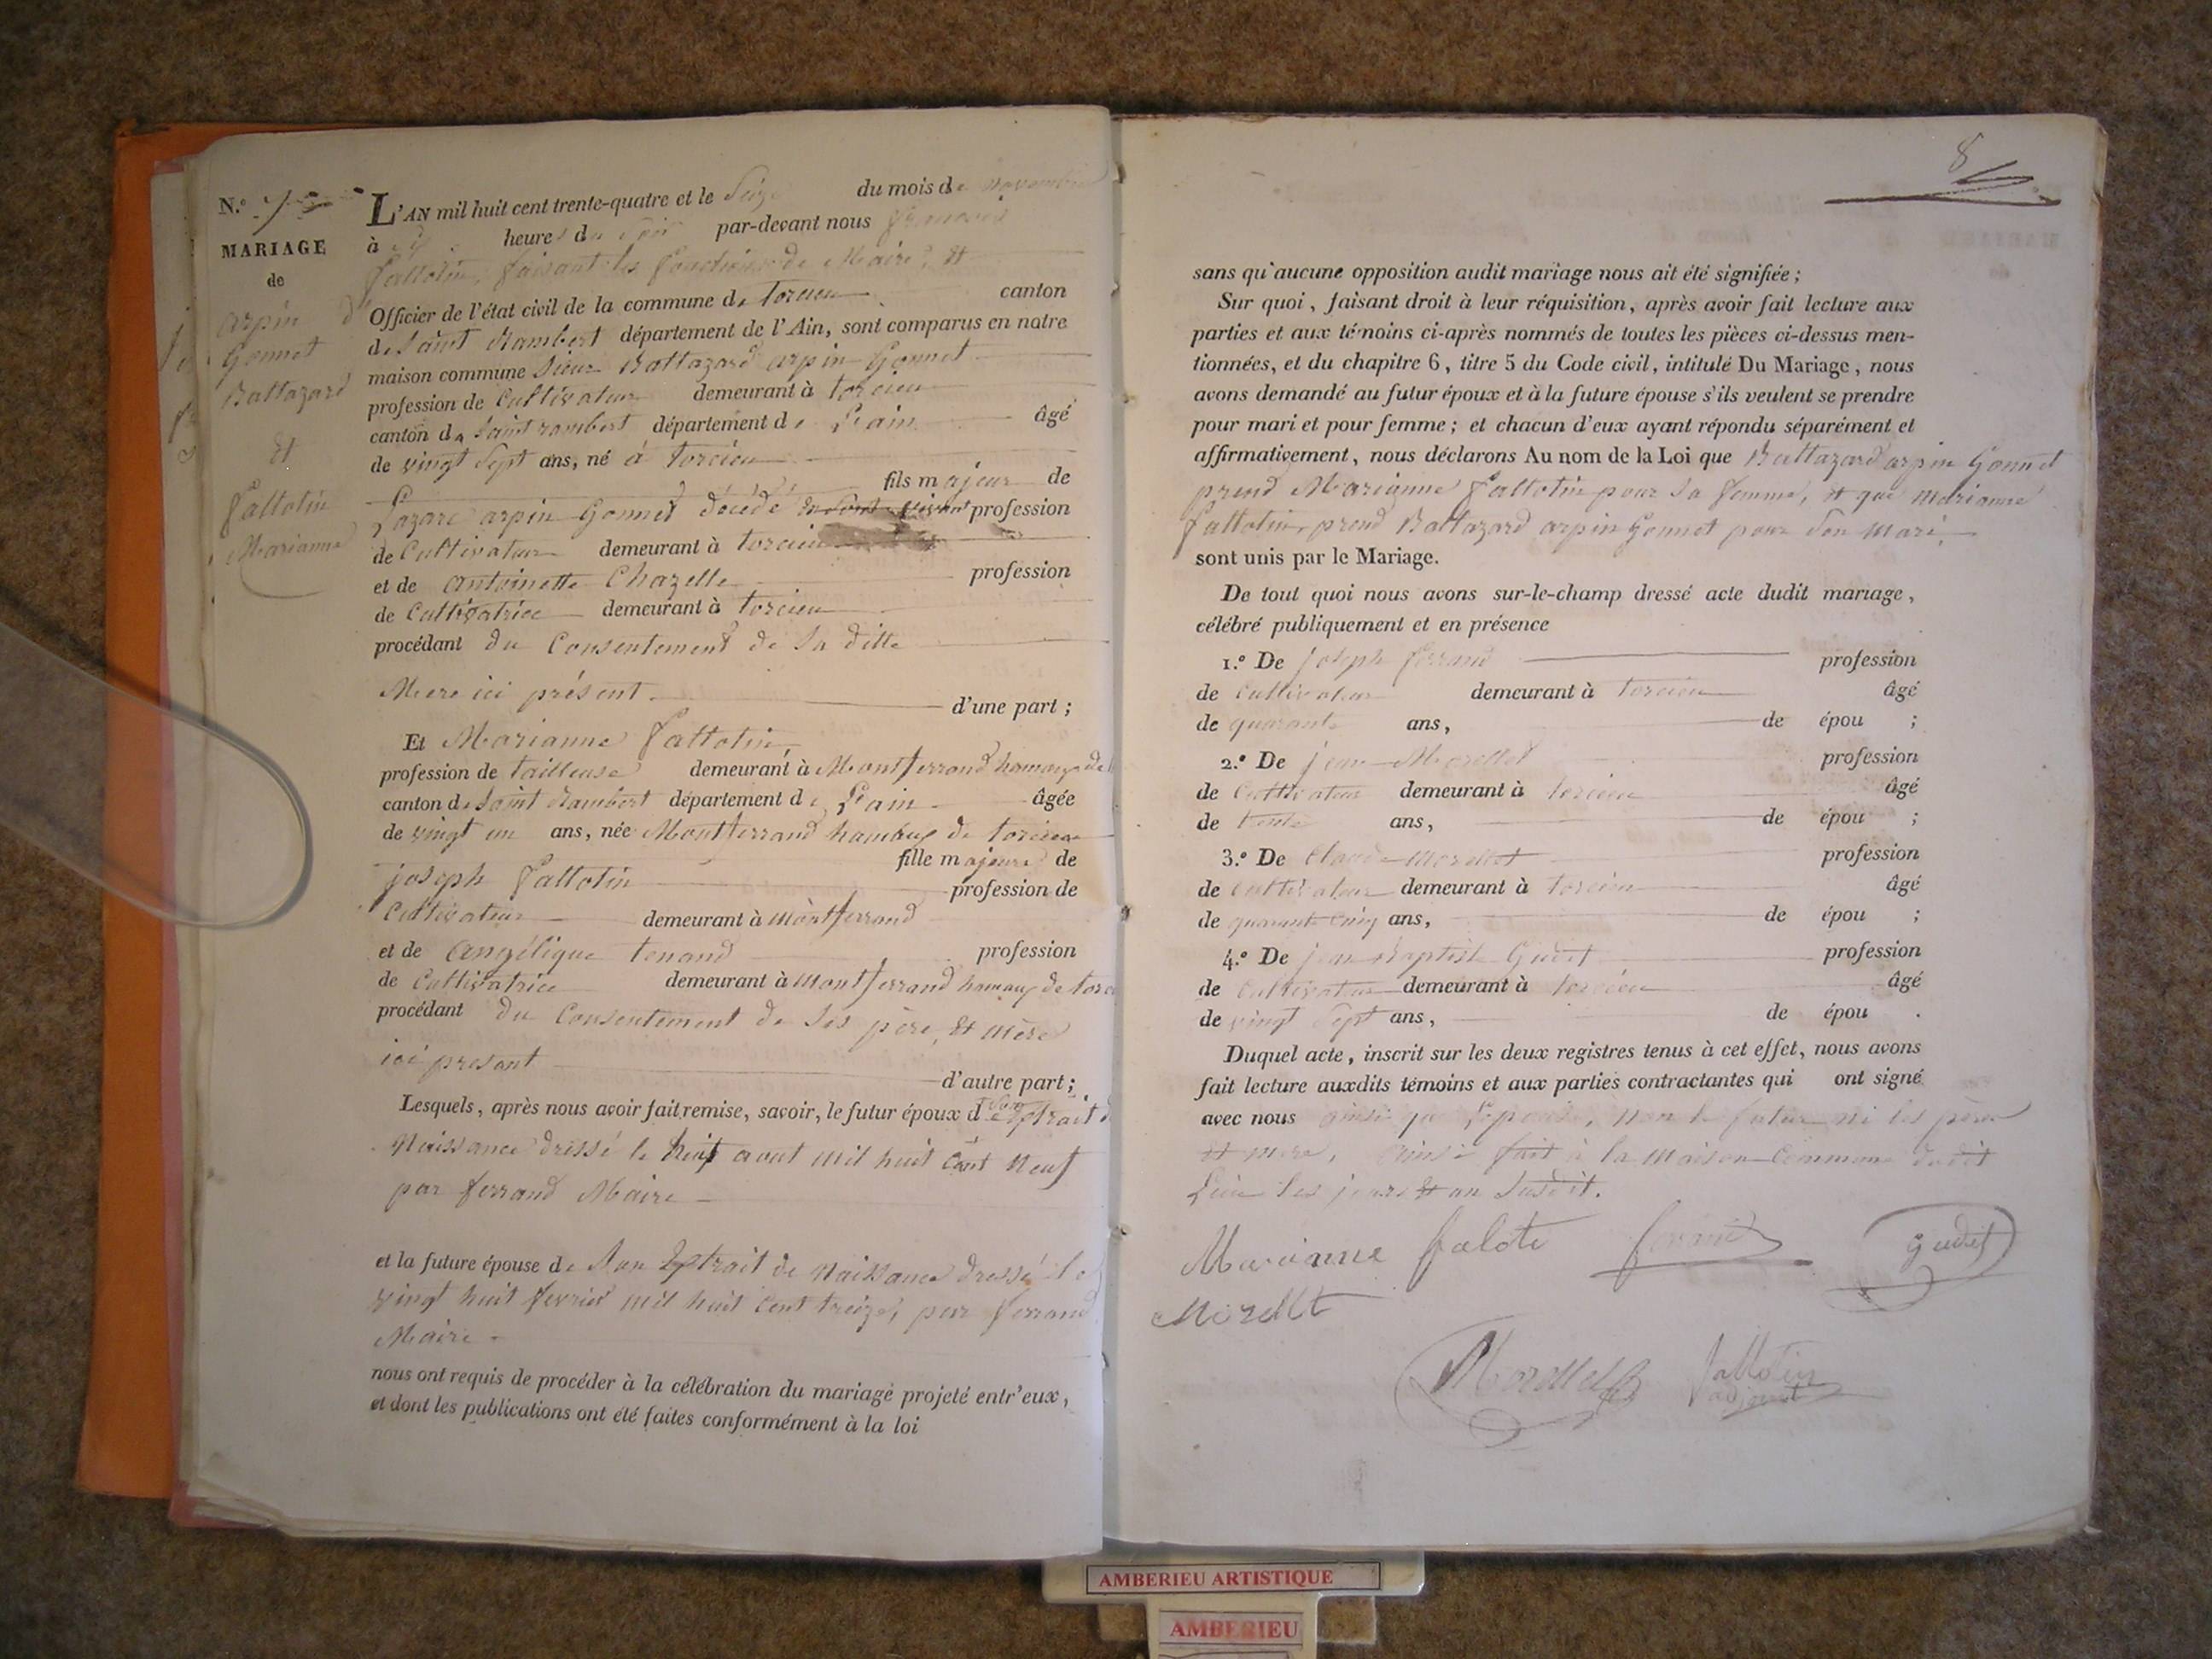 N.º 7
MARIAGE
de
arpin
Gonnet
Baltazard
Et
fallotin
Marianne
L'AN mil huit cent trente-quatre et le Seize du mois de novembre
à heures du soir par-devant nous
fallotin, faisant les fonctions de Maire, Et
Officier de l'état civil de la commune de torcieu canton
de Saint Rambert département de l'Ain, sont comparus en notre
maison commune Sieur Baltazard arpin Gonnet
profession de Cultivateur demeurant à torcieu
canton de Saint rambert département de L'ain âgé
de vingt Sept ans, né à torcieu
fils majeur de
Lazare arpin Gonnet décédé profession
de Cultivateur demeurant à torcieu
et de antoinette Chazelle profession
de Cultivatrice demeurant à torcieu
procédant du Consentement de Sa ditte
Mere ici présent d'une part ;
Et Marianne fallotin
profession de tailleuse demeurant à Montferrand hamaux de
canton de Saint Rambert département de L'ain âgée
de vingt un ans, née Montferrand hamaux de torcieu
fille majeure de
joseph fallotin profession de
Cultivateur demeurant à montferrand
et de angélique tenand profession
de Cultivatrice demeurant à montferrand hamaux de torci
procédant du Consentement de Ses père, Et mère
ici présant d'autre part ;
Lesquels, après nous avoir fait remise, savoir, le futur époux de Son Extrait d
Naissance dressé le huit avout mil huit Cent Neuf
par ferrand Maire
et la future épouse de Son Extrait de Naissance dressé le
vingt huit fevrier mil huit Cent treize, par ferrand
Maire
nous ont requis de procéder à la célébration du mariage projeté entr'eux,
et dont les publications ont été faites conformément à la loi
8
sans qu'aucune opposition audit mariage nous ait été signifiée ;
Sur quoi, faisant droit à leur réquisition, après avoir fait lecture aux
parties et aux témoins ci-après nommés de toutes les pièces ci-dessus men-
tionnées, et du chapitre 6, titre 5 du Code civil, intitulé Du Mariage, nous
avons demandé au futur époux et à la future épouse s'ils veulent se prendre
pour mari et pour femme ; et chacun d'eux ayant répondu séparément et
affirmativement, nous déclarons Au nom de la Loi que Baltazard arpin Gonnet
prend Marianne fallotin pour Sa femme, Et que marianne
fallotin, prend Baltazard arpin Gonnet pour Son mari,
sont unis par le Mariage.
De tout quoi nous avons sur-le-champ dressé acte dudit mariage,
célébré publiquement et en présence
1.º De joseph ferrand profession
de Cultivateur demeurant à torcieu âgé
de quarante ans, de épou ;
2.º De jean Morellet profession
de Cultivateur demeurant à torcieu âgé
de trente ans, de épou ;
3.º De Claude morellet profession
de Cultivateur demeurant à torcieu âgé
de quarante Cinq ans, de épou ;
4.º De jean Baptiste Gudet profession
de Cultivateur demeurant à torcieu âgé
de vingt Sept ans, de épou .
Duquel acte, inscrit sur les deux registres tenus à cet effet, nous avons
fait lecture auxdits témoins et aux parties contractantes qui ont signé
avec nous ainsi que L'épouse, non le futur ni les pères
Et mere, ainsi fait à la Maison Commune dudit
Lieu les jours Et an Susdit.
Marianne falote ferrand gudet
Morellt
Morellet fallotin
adjoint
AMBERIEU ARTISTIQUE
AMBERIEU